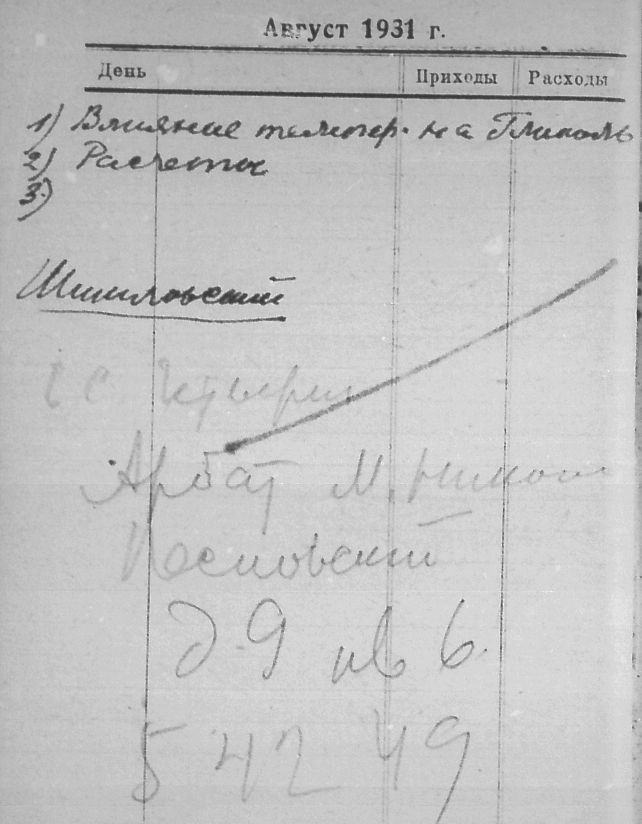 Август 1931 г.
День Приходы Расходы
1) Влияние темпер. на Гликоль
2) Расчеты
3)
Шишловский
Арбат М. Никол
Песковский
д. 9 кв 6.
5 42 49